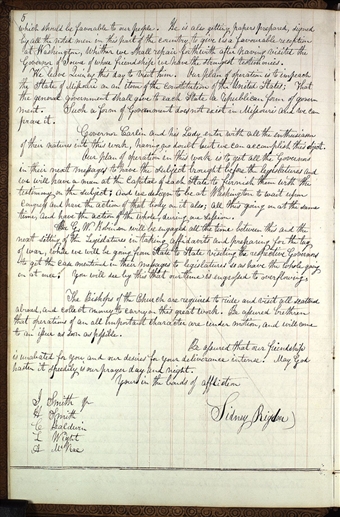 6
which should be favorable to our people. He is also getting papers prepared, signed
by all the noted men in this part of the country to give us a favourable reception
at Washington, whither we shall repair forthwith after having visited the
Governor of Iowa of whose friendship we have the strongest testimonies.
We leave Quincy this day to visit him. Our plan of operation is to impeach
the State of Missouri on an item of the Constitution of the United States; That
the general government shall give to each State a Republican form of govern
ment. Such a form of Government does not exist in Missouri and we can
prove it.
Governor Carlin and his Lady enter with all the enthusiasm
of their natures into this work, having no doubt but we can accomplish this object.
Our plan of operation in this work is to get all the Governors
in their next messages to have the subject brought before the legislatures and
we will have a man at the Capitol of each State to furnish them with the
testimony on the subject; and we design to be at Washington to wait upon
Congress and have the action of that body on it also; all this going on at the same
time, and have the action of the whole during one session.
Mr G. W. Robinson will be engaged all the time between this and the
next sitting of the legislatures in taking affidavits and preparing for the tug
of war, while we will be going from State to State visiting the respective Governors
to get the case mentioned in their messages to legislatures so as have the whole going
on at once. You will see by this that our time is engrossed to overflowing.
The Bishops of the Church are required to ride and visit all scattered
abroad, and collect money to carry on this great work. Be assured brethren
that operations of an all important character are under motion, and will come
to an issue as soon as possible.
Be assured that our friendship
is unabated for you and our desires for your deliverance intense. May God
hasten it speedily is our prayer day and night.
Yours in the bonds of affliction
Sidney Rigdon
J Smith Jr
H Smith
C Baldwin
L Wight
A McRae